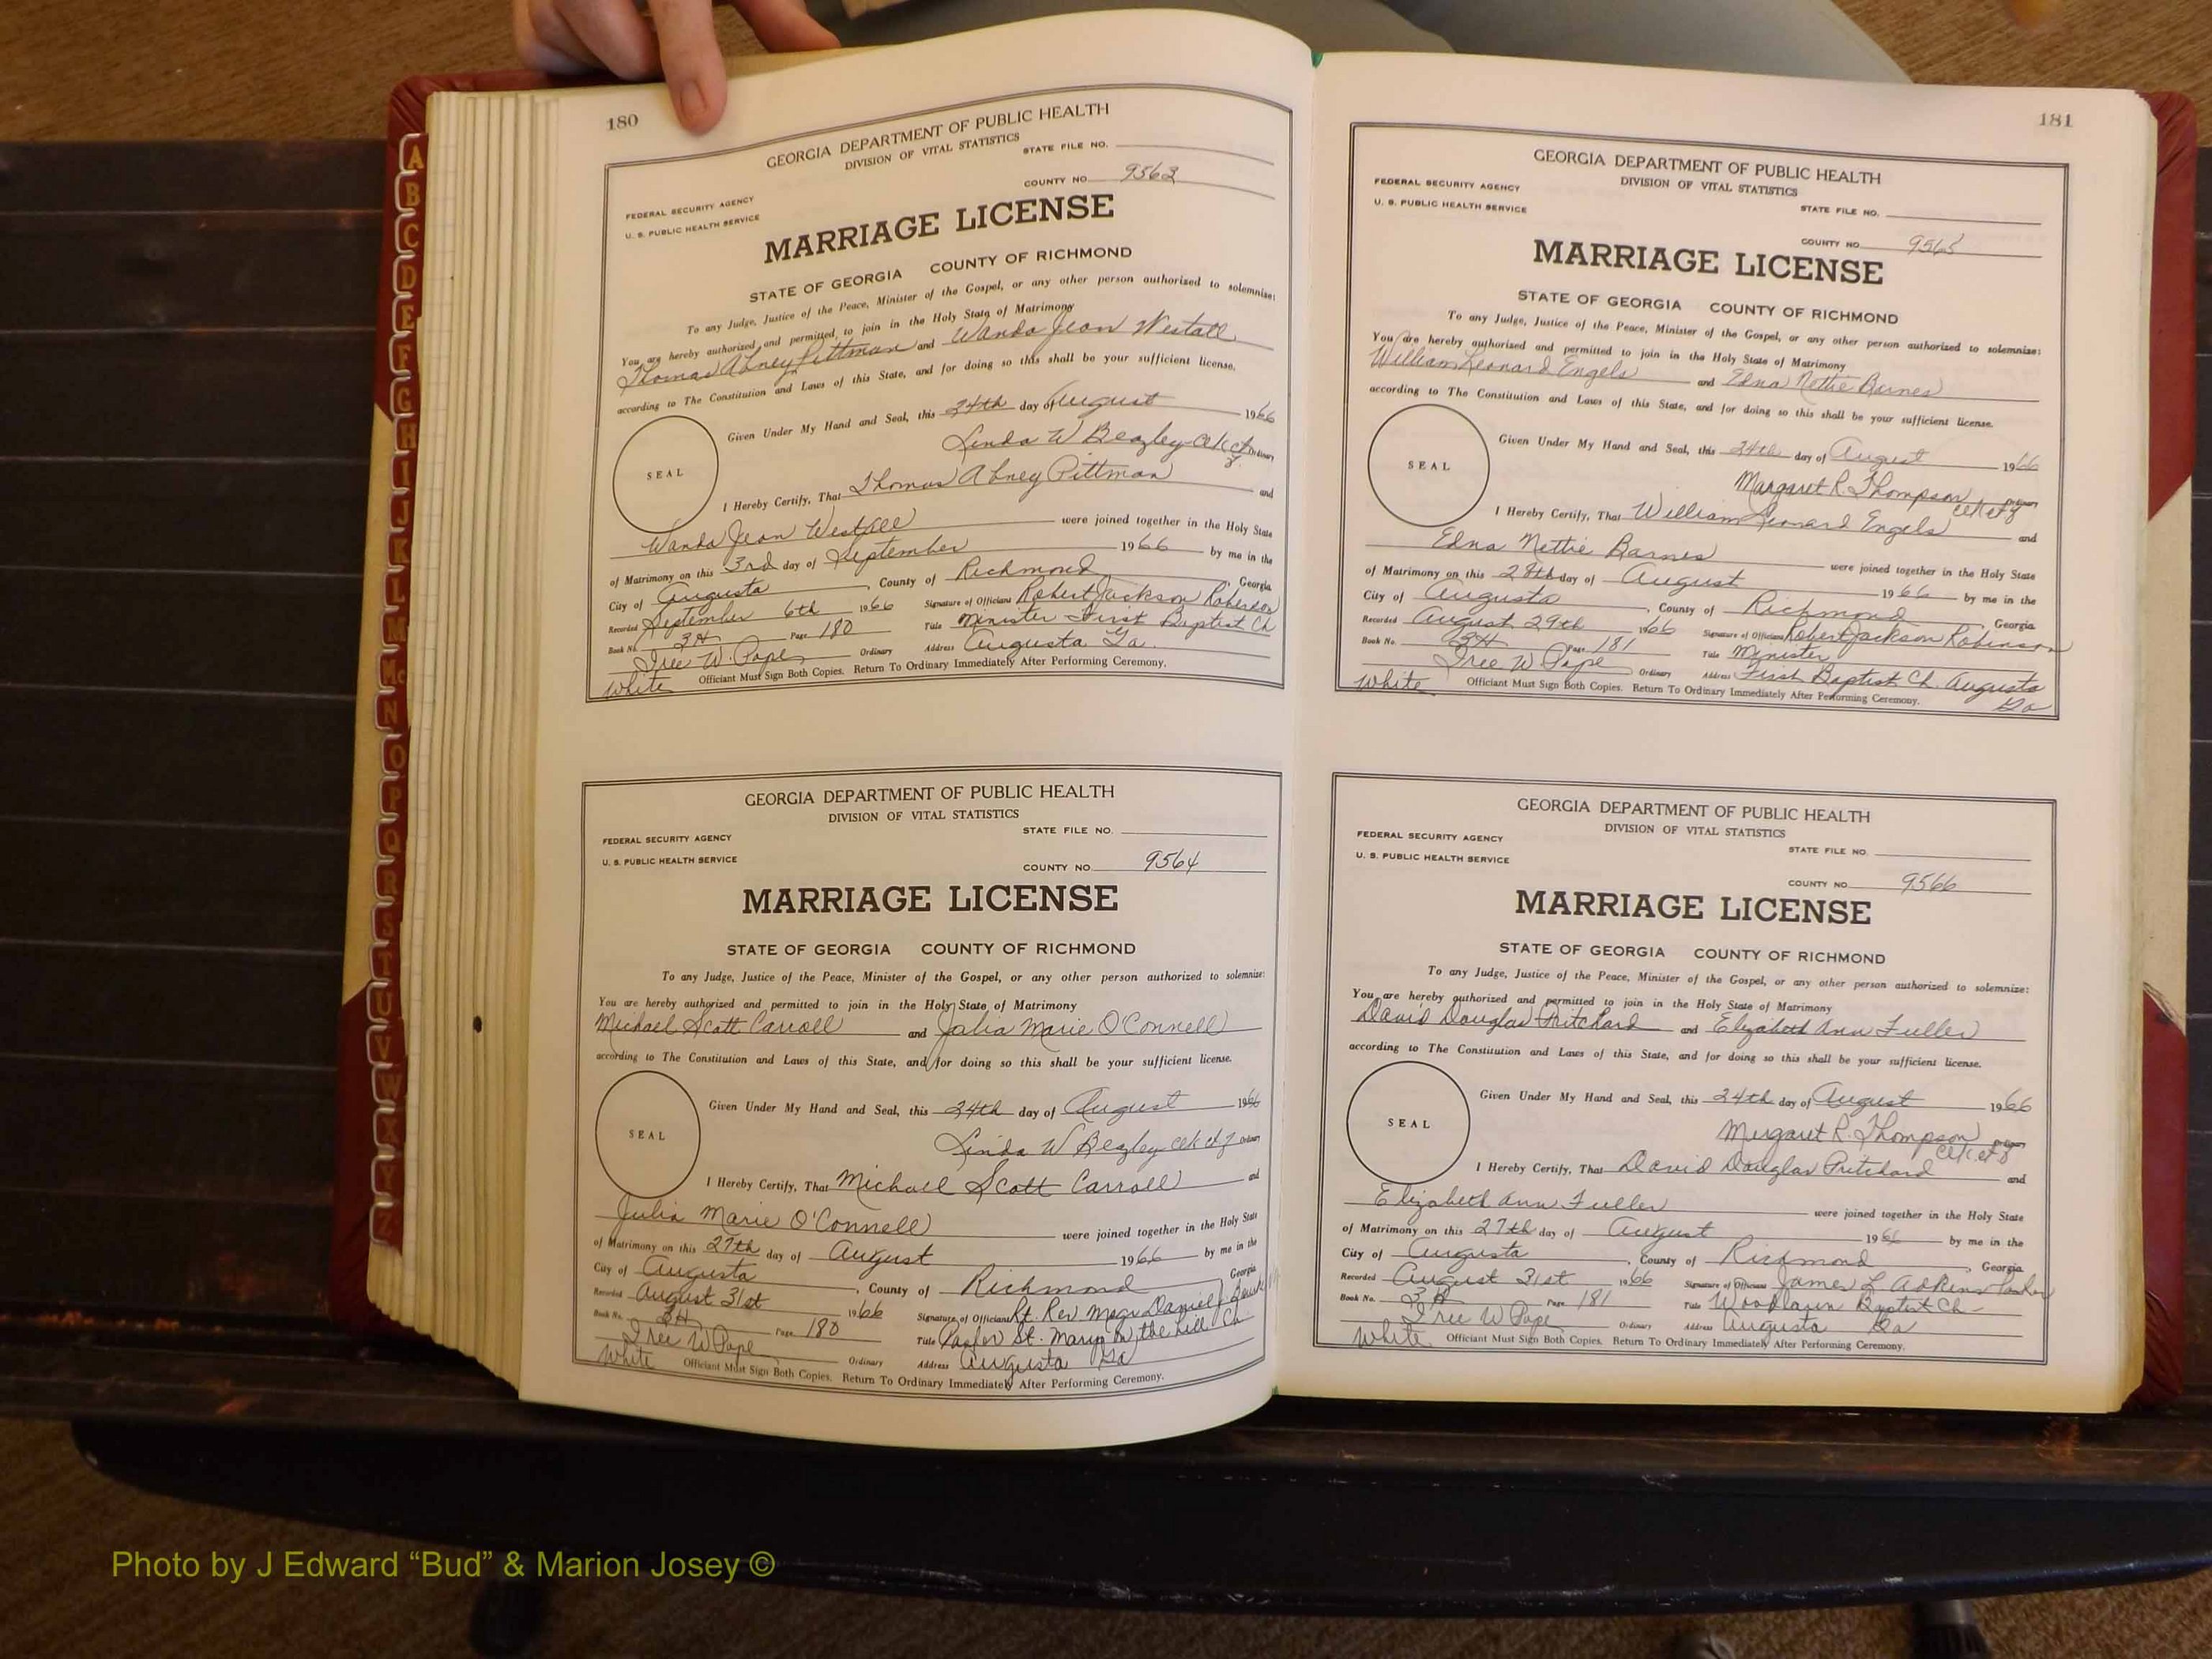 180
GEORGIA DEPARTMENT OF PUBLIC HEALTH
DIVISION OF VITAL STATISTICS
STATE FILE NO.
COUNTY NO. 9563
FEDERAL SECURITY AGENCY
U. S. PUBLIC HEALTH SERVICE
MARRIAGE LICENSE
STATE OF GEORGIA COUNTY OF RICHMOND
To any Judge, Justice of the Peace, Minister of the Gospel, or any other person authorized to solemnize:
You are hereby authorized and permitted to join in the Holy State of Matrimony
Thomas Abney Pittman and Wanda Jean Westall
according to The Constitution and Laws of this State, and for doing so this shall be your sufficient license.
Given Under My Hand and Seal, this 24th day of August 1966
Linda W Beazley Clk Ordinary
SEAL
I Hereby Certify, That Thomas Abney Pittman and
Wanda Jean Westall were joined together in the Holy State
of Matrimony on this 3rd day of September 1966 by me in the
City of Augusta, County of Richmond, Georgia
Recorded September 6th 1966 Signature of Officiant Robert Jackson
Book No. 3H Page 180 Title Minister First Baptist Ch
Iree W. Pope Ordinary Address Augusta Ga.
White Officiant Must Sign Both Copies. Return To Ordinary Immediately After Performing Ceremony.
GEORGIA DEPARTMENT OF PUBLIC HEALTH
DIVISION OF VITAL STATISTICS
STATE FILE NO.
FEDERAL SECURITY AGENCY
U. S. PUBLIC HEALTH SERVICE
COUNTY NO. 9564
MARRIAGE LICENSE
STATE OF GEORGIA COUNTY OF RICHMOND
To any Judge, Justice of the Peace, Minister of the Gospel, or any other person authorized to solemnize:
You are hereby authorized and permitted to join in the Holy State of Matrimony
Michael Scott Carroll and Julia Marie O'Connell
according to The Constitution and Laws of this State, and for doing so this shall be your sufficient license.
Given Under My Hand and Seal, this 24th day of August 1966
Linda W Beazley Clk Ordinary
SEAL
I Hereby Certify, That Michael Scott Carroll and
Julia Marie O'Connell were joined together in the Holy State
of Matrimony on this 27th day of August 1966 by me in the
City of Augusta, County of Richmond Georgia
Recorded August 31st 1966 Signature of Officiant Rt. Rev Daniel J.
Book No. 3H Page 180 Title Pastor St. Mary the Hill Ch
Iree W Pope Ordinary Address Augusta Ga
White Officiant Must Sign Both Copies. Return To Ordinary Immediately After Performing Ceremony.
181
GEORGIA DEPARTMENT OF PUBLIC HEALTH
DIVISION OF VITAL STATISTICS
FEDERAL SECURITY AGENCY
U. S. PUBLIC HEALTH SERVICE
STATE FILE NO.
COUNTY NO. 9565
MARRIAGE LICENSE
STATE OF GEORGIA COUNTY OF RICHMOND
To any Judge, Justice of the Peace, Minister of the Gospel, or any other person authorized to solemnize:
You are hereby authorized and permitted to join in the Holy State of Matrimony
William Leonard Engels and Edna Nettie Barnes
according to The Constitution and Laws of this State, and for doing so this shall be your sufficient license.
Given Under My Hand and Seal, this 24th day of August 1966
Margaret R. Thompson Ordinary
SEAL
I Hereby Certify, That William Leonard Engels and
Edna Nettie Barnes were joined together in the Holy State
of Matrimony on this 28th day of August 1966 by me in the
City of Augusta, County of Richmond, Georgia
Recorded August 29th 1966 Signature of Officiant Robert Jackson Robinson
Book No. 3H Page 181 Title Minister
Iree W Pope Ordinary Address First Baptist Ch. Augusta
Ga
White Officiant Must Sign Both Copies. Return To Ordinary Immediately After Performing Ceremony.
GEORGIA DEPARTMENT OF PUBLIC HEALTH
DIVISION OF VITAL STATISTICS
FEDERAL SECURITY AGENCY
U. S. PUBLIC HEALTH SERVICE
STATE FILE NO.
COUNTY NO. 9566
MARRIAGE LICENSE
STATE OF GEORGIA COUNTY OF RICHMOND
To any Judge, Justice of the Peace, Minister of the Gospel, or any other person authorized to solemnize:
You are hereby authorized and permitted to join in the Holy State of Matrimony
David Douglas Pritchard and Elizabeth Ann Fuller
according to The Constitution and Laws of this State, and for doing so this shall be your sufficient license.
Given Under My Hand and Seal, this 24th day of August 1966
Margaret R. Thompson Ordinary
SEAL
I Hereby Certify, That David Douglas Pritchard and
Elizabeth Ann Fuller were joined together in the Holy State
of Matrimony on this 27th day of August 1966 by me in the
City of Augusta, County of Richmond, Georgia
Recorded August 31st 1966 Signature of Officiant James L. Adkins
Book No. 3H Page 181 Title Woodlawn Baptist Ch
Iree W Pope Ordinary Address Augusta Ga
White Officiant Must Sign Both Copies. Return To Ordinary Immediately After Performing Ceremony.
A
B
C
D
E
F
G
H
I
J
K
L
M
Mc
N
O
P
Q
R
S
T
U
V
W
X
Y
Z
Photo by J Edward “Bud” & Marion Josey ©